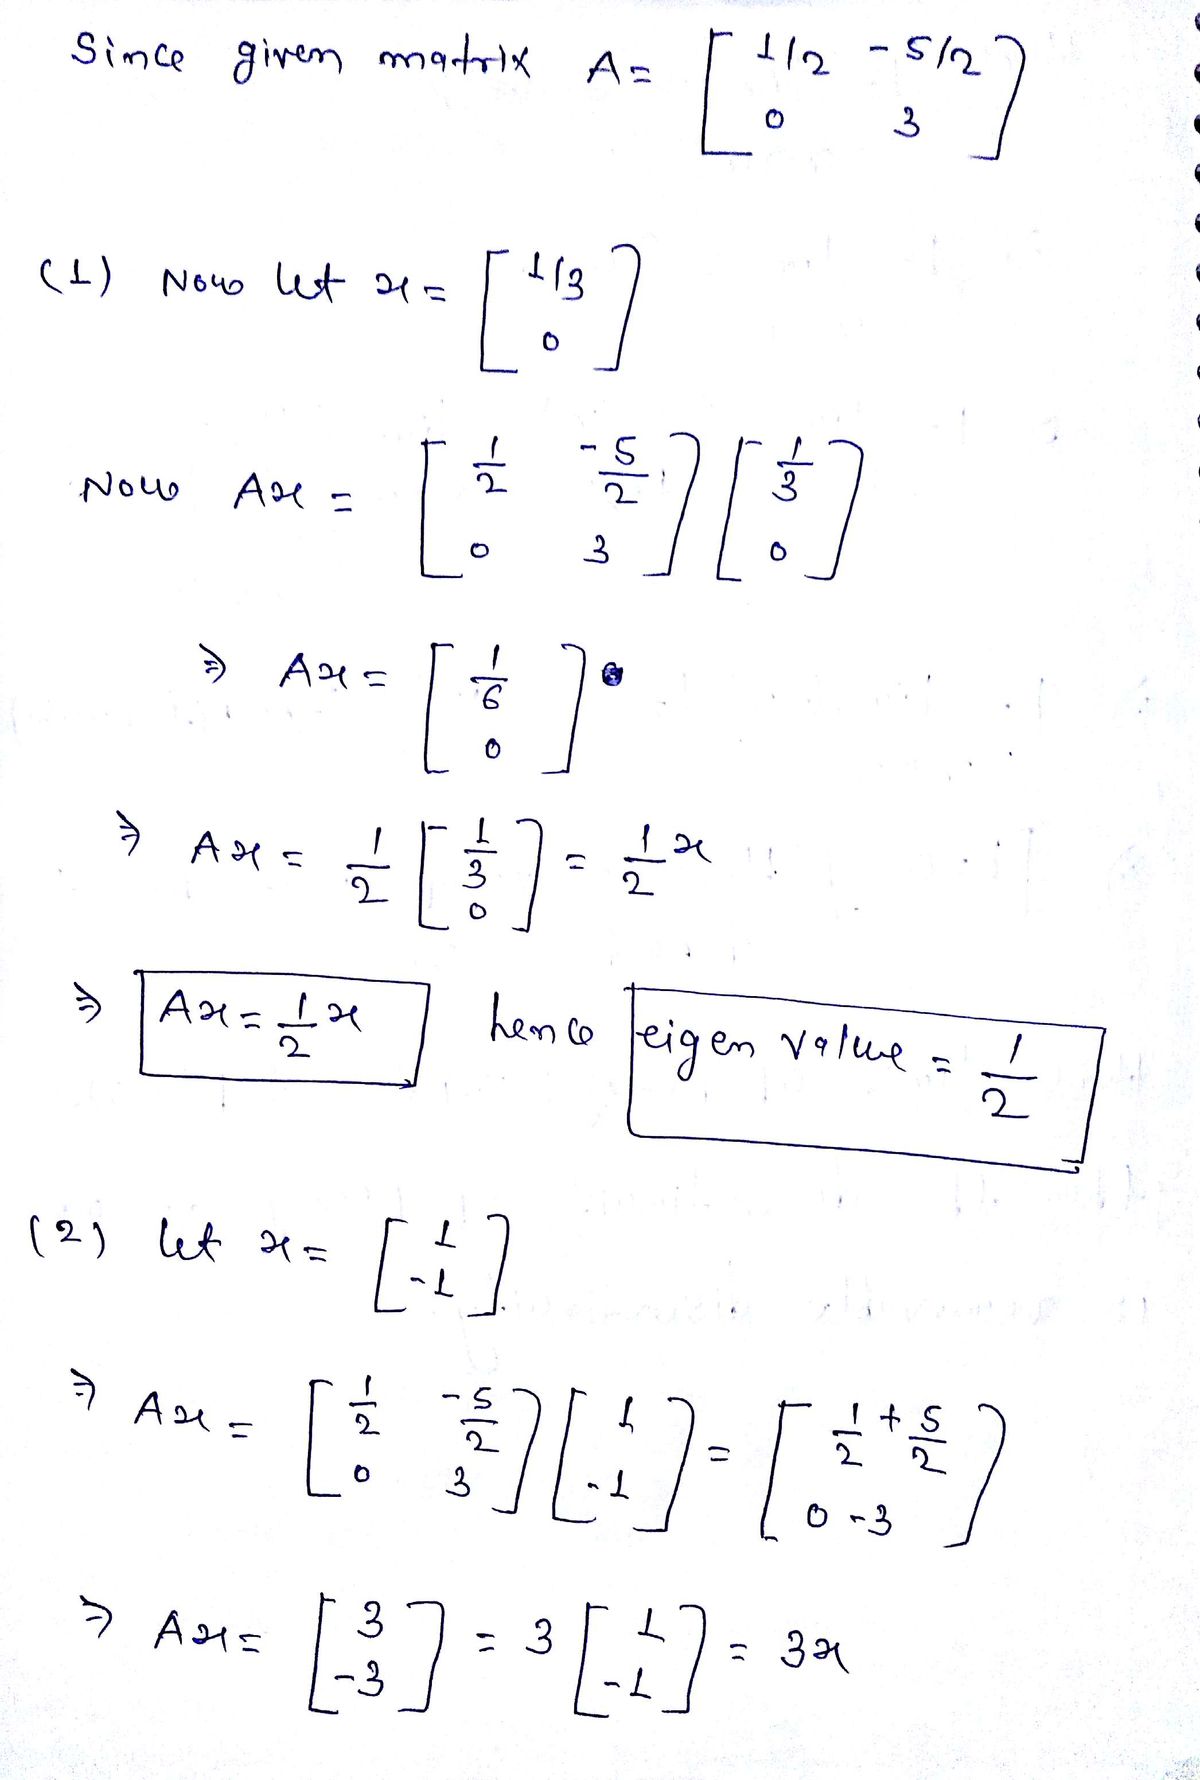 Since given matrix A = [ 1/2 -5/2
0 3 ]
(1) Now let x = [ 1/3
0 ]
Now Ax = [ 1/2 -5/2
0 3 ] [ 1/3
0 ]
⇒ Ax = [ 1/6
0 ]
⇒ Ax = 1/2 [ 1/3
0 ] = 1/2 x
⇒ Ax = 1/2 x hence eigen value = 1/2
(2) let x = [ 1
-1 ]
⇒ Ax = [ 1/2 -5/2
0 3 ] [ 1
-1 ] = [ 1/2 + 5/2
0 -3 ]
⇒ Ax = [ 3
-3 ] = 3 [ 1
-1 ] = 3x